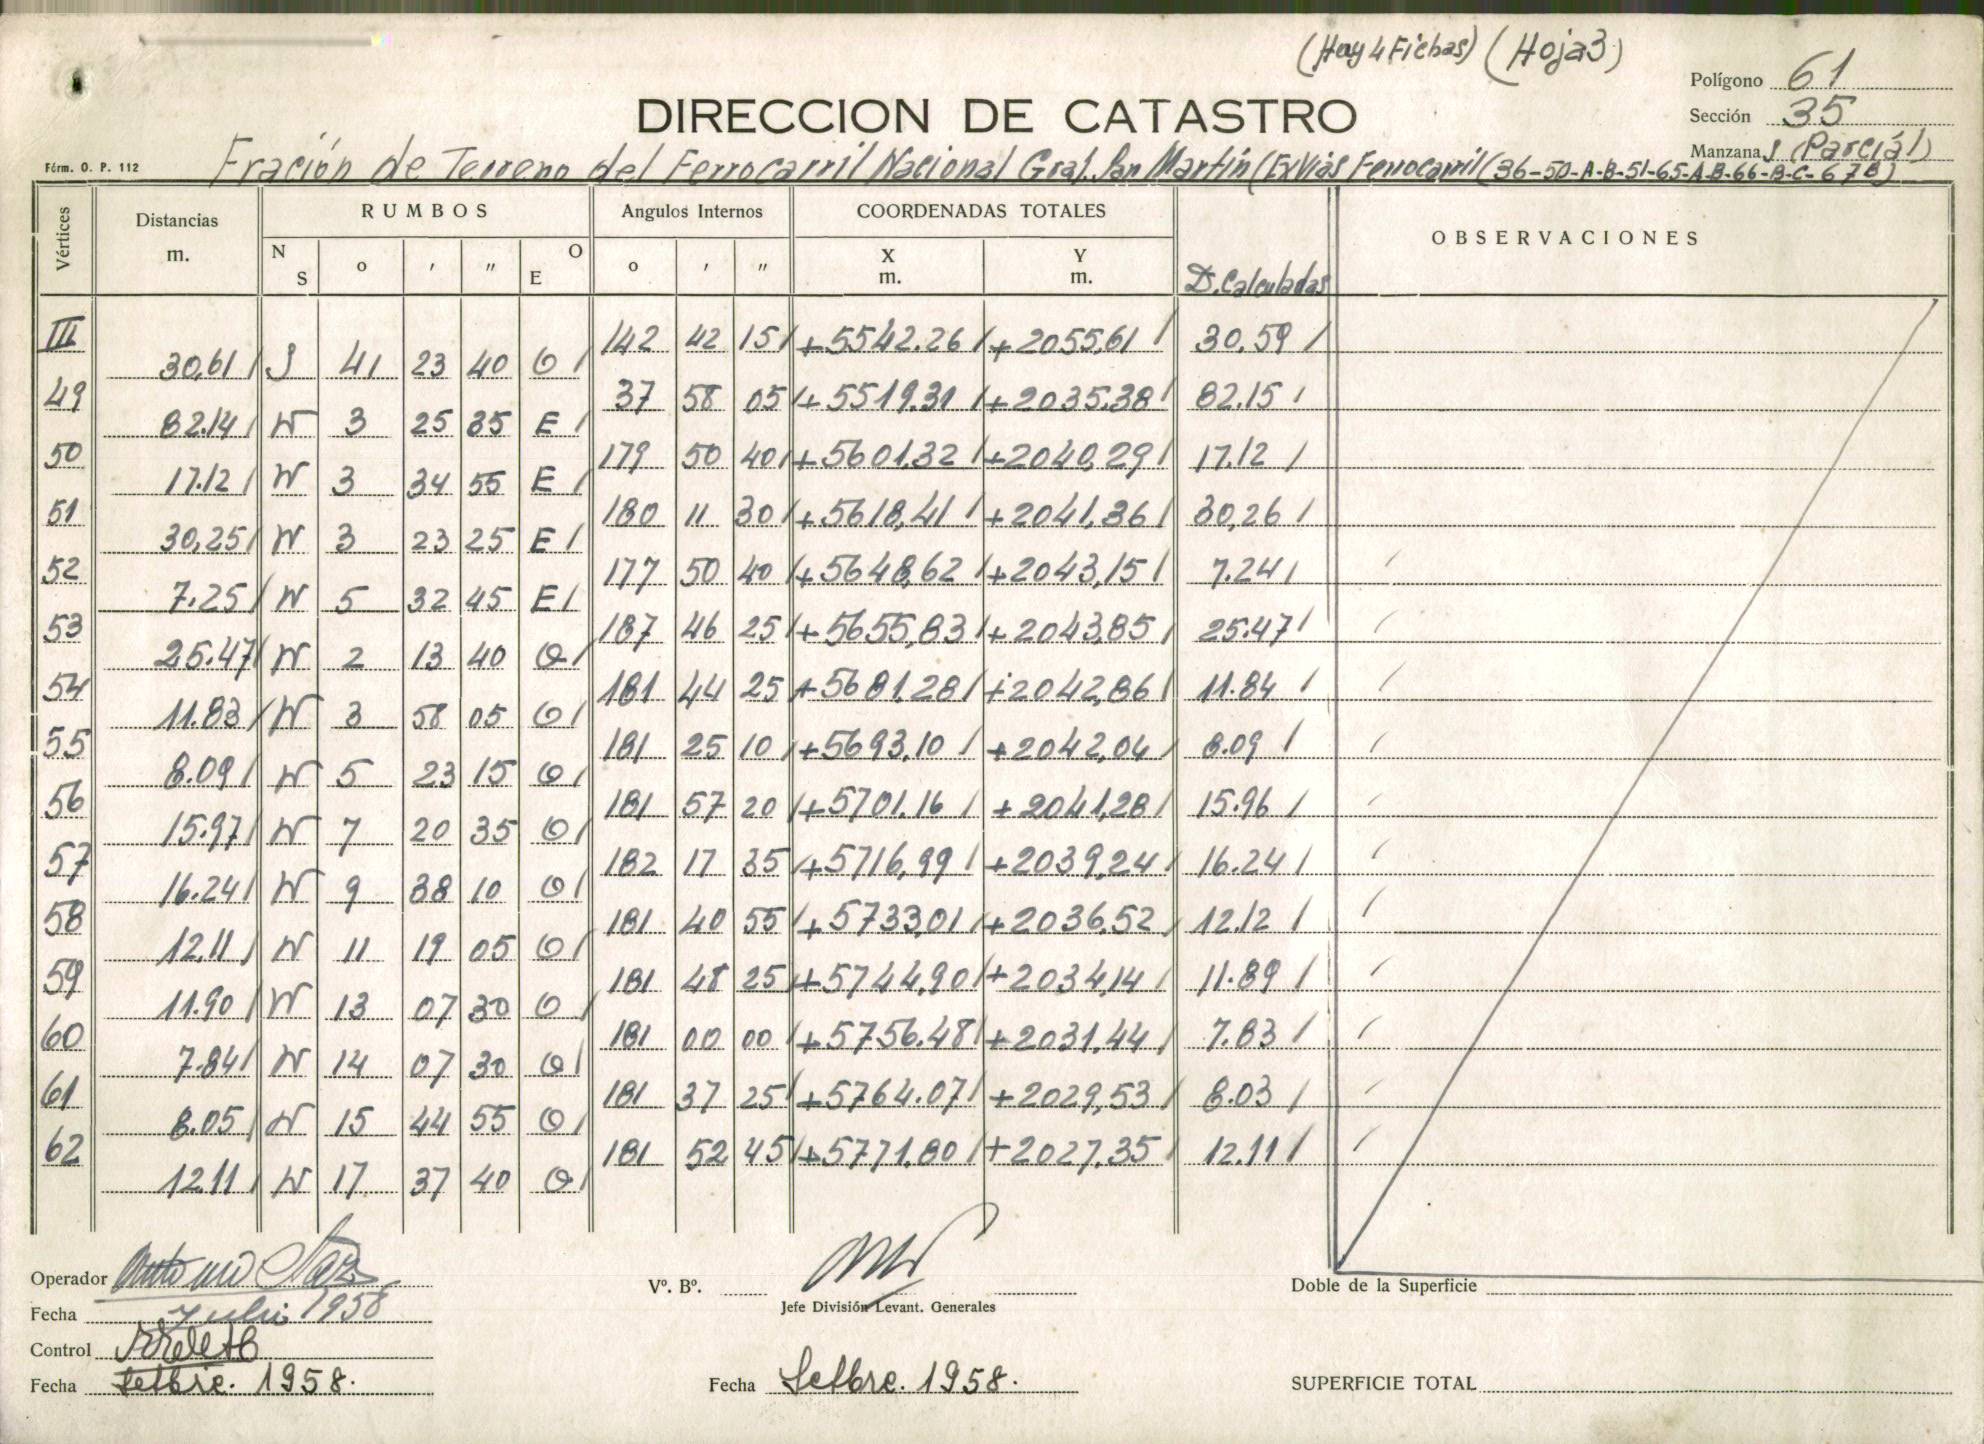 (Hay 4 Fichas) (Hoja 3)
Polígono 61
DIRECCION DE CATASTRO
Sección 35
Manzana J (Parcial)
Fórm. O. P. 112
Fración de Terreno del Ferrocarril Nacional Gral. San Martín (Ex Vías Ferrocarril (36-50-A-B-51-65-A-B-66-B-C-67B)
Vértices Distancias m. RUMBOS Angulos Internos COORDENADAS TOTALES D. Calculadas OBSERVACIONES
N S o ' " O E o ' " X m. Y m.
III 142 42 15 +5542.26 +2055,61 30,59
30,61 S 41 23 40 O
49 37 58 05 +5519.31 +2035,38 82.15
82.14 N 3 25 35 E
50 179 50 40 +5601,32 +2040,29 17.12
17.12 N 3 34 55 E
51 180 11 30 +5618,41 +2041,36 30,26
30,25 N 3 23 25 E
52 177 50 40 +5648,62 +2043,15 7.24
7.25 N 5 32 45 E
53 187 46 25 +5655,83 +2043,85 25.47
25.47 N 2 13 40 O
54 181 44 25 +5681.28 +2042,86 11.84
11.83 N 3 58 05 O
55 181 25 10 +5693,10 +2042,04 8.09
8.09 N 5 23 15 O
56 181 57 20 +5701.16 +2041,28 15.96
15.97 N 7 20 35 O
57 182 17 35 +5716,99 +2039,24 16.24
16.24 N 9 38 10 O
58 181 40 55 +5733,01 +2036,52 12.12
12,11 N 11 19 05 O
59 181 48 25 +5744,90 +2034,14 11.89
11.90 N 13 07 30 O
60 181 00 00 +5756.48 +2031,44 7.83
7.84 N 14 07 30 O
61 181 37 25 +5764.07 +2029,53 8.03
8.05 N 15 44 55 O
62 181 52 45 +5771.80 +2027.35 12.11
12.11 N 17 37 40 O
Operador
Vº. Bº.
Doble de la Superficie
Fecha Julio 1958
Jefe División Levant. Generales
Control
Fecha Setbre. 1958.
Fecha Setbre. 1958.
SUPERFICIE TOTAL